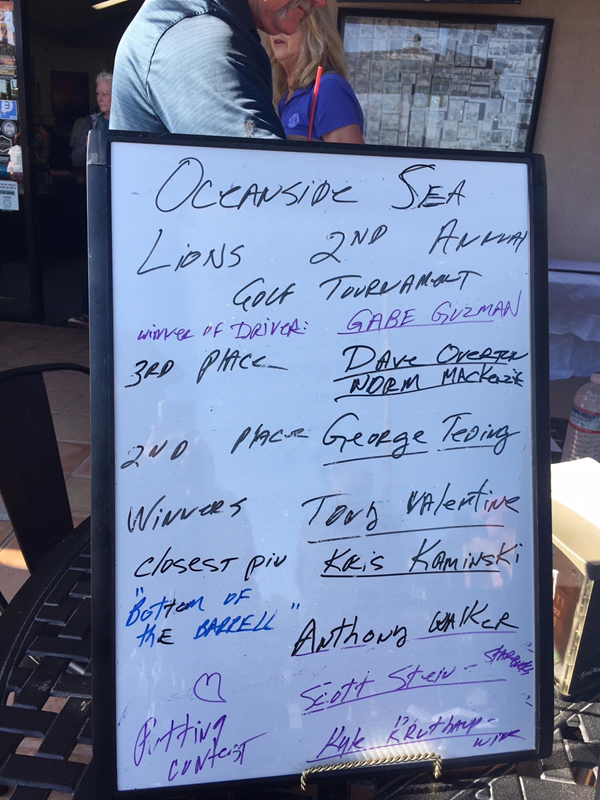 OCEANSIDE SEA
LIONS 2ND ANNUAL
GOLF TOURNAMENT
WINNER OF DRIVER: GABE GUZMAN
3RD PLACE DAVE OVERTON
NORM MACKENZIE
2ND PLACE George Teding
WINNERS Tony Valentine
Closest pin Kris Kaminski
"Bottom OF
the BARRELL" Anthony WALKER
Scott Stein - STARBUCKS
Putting
contest Kyle - WINE